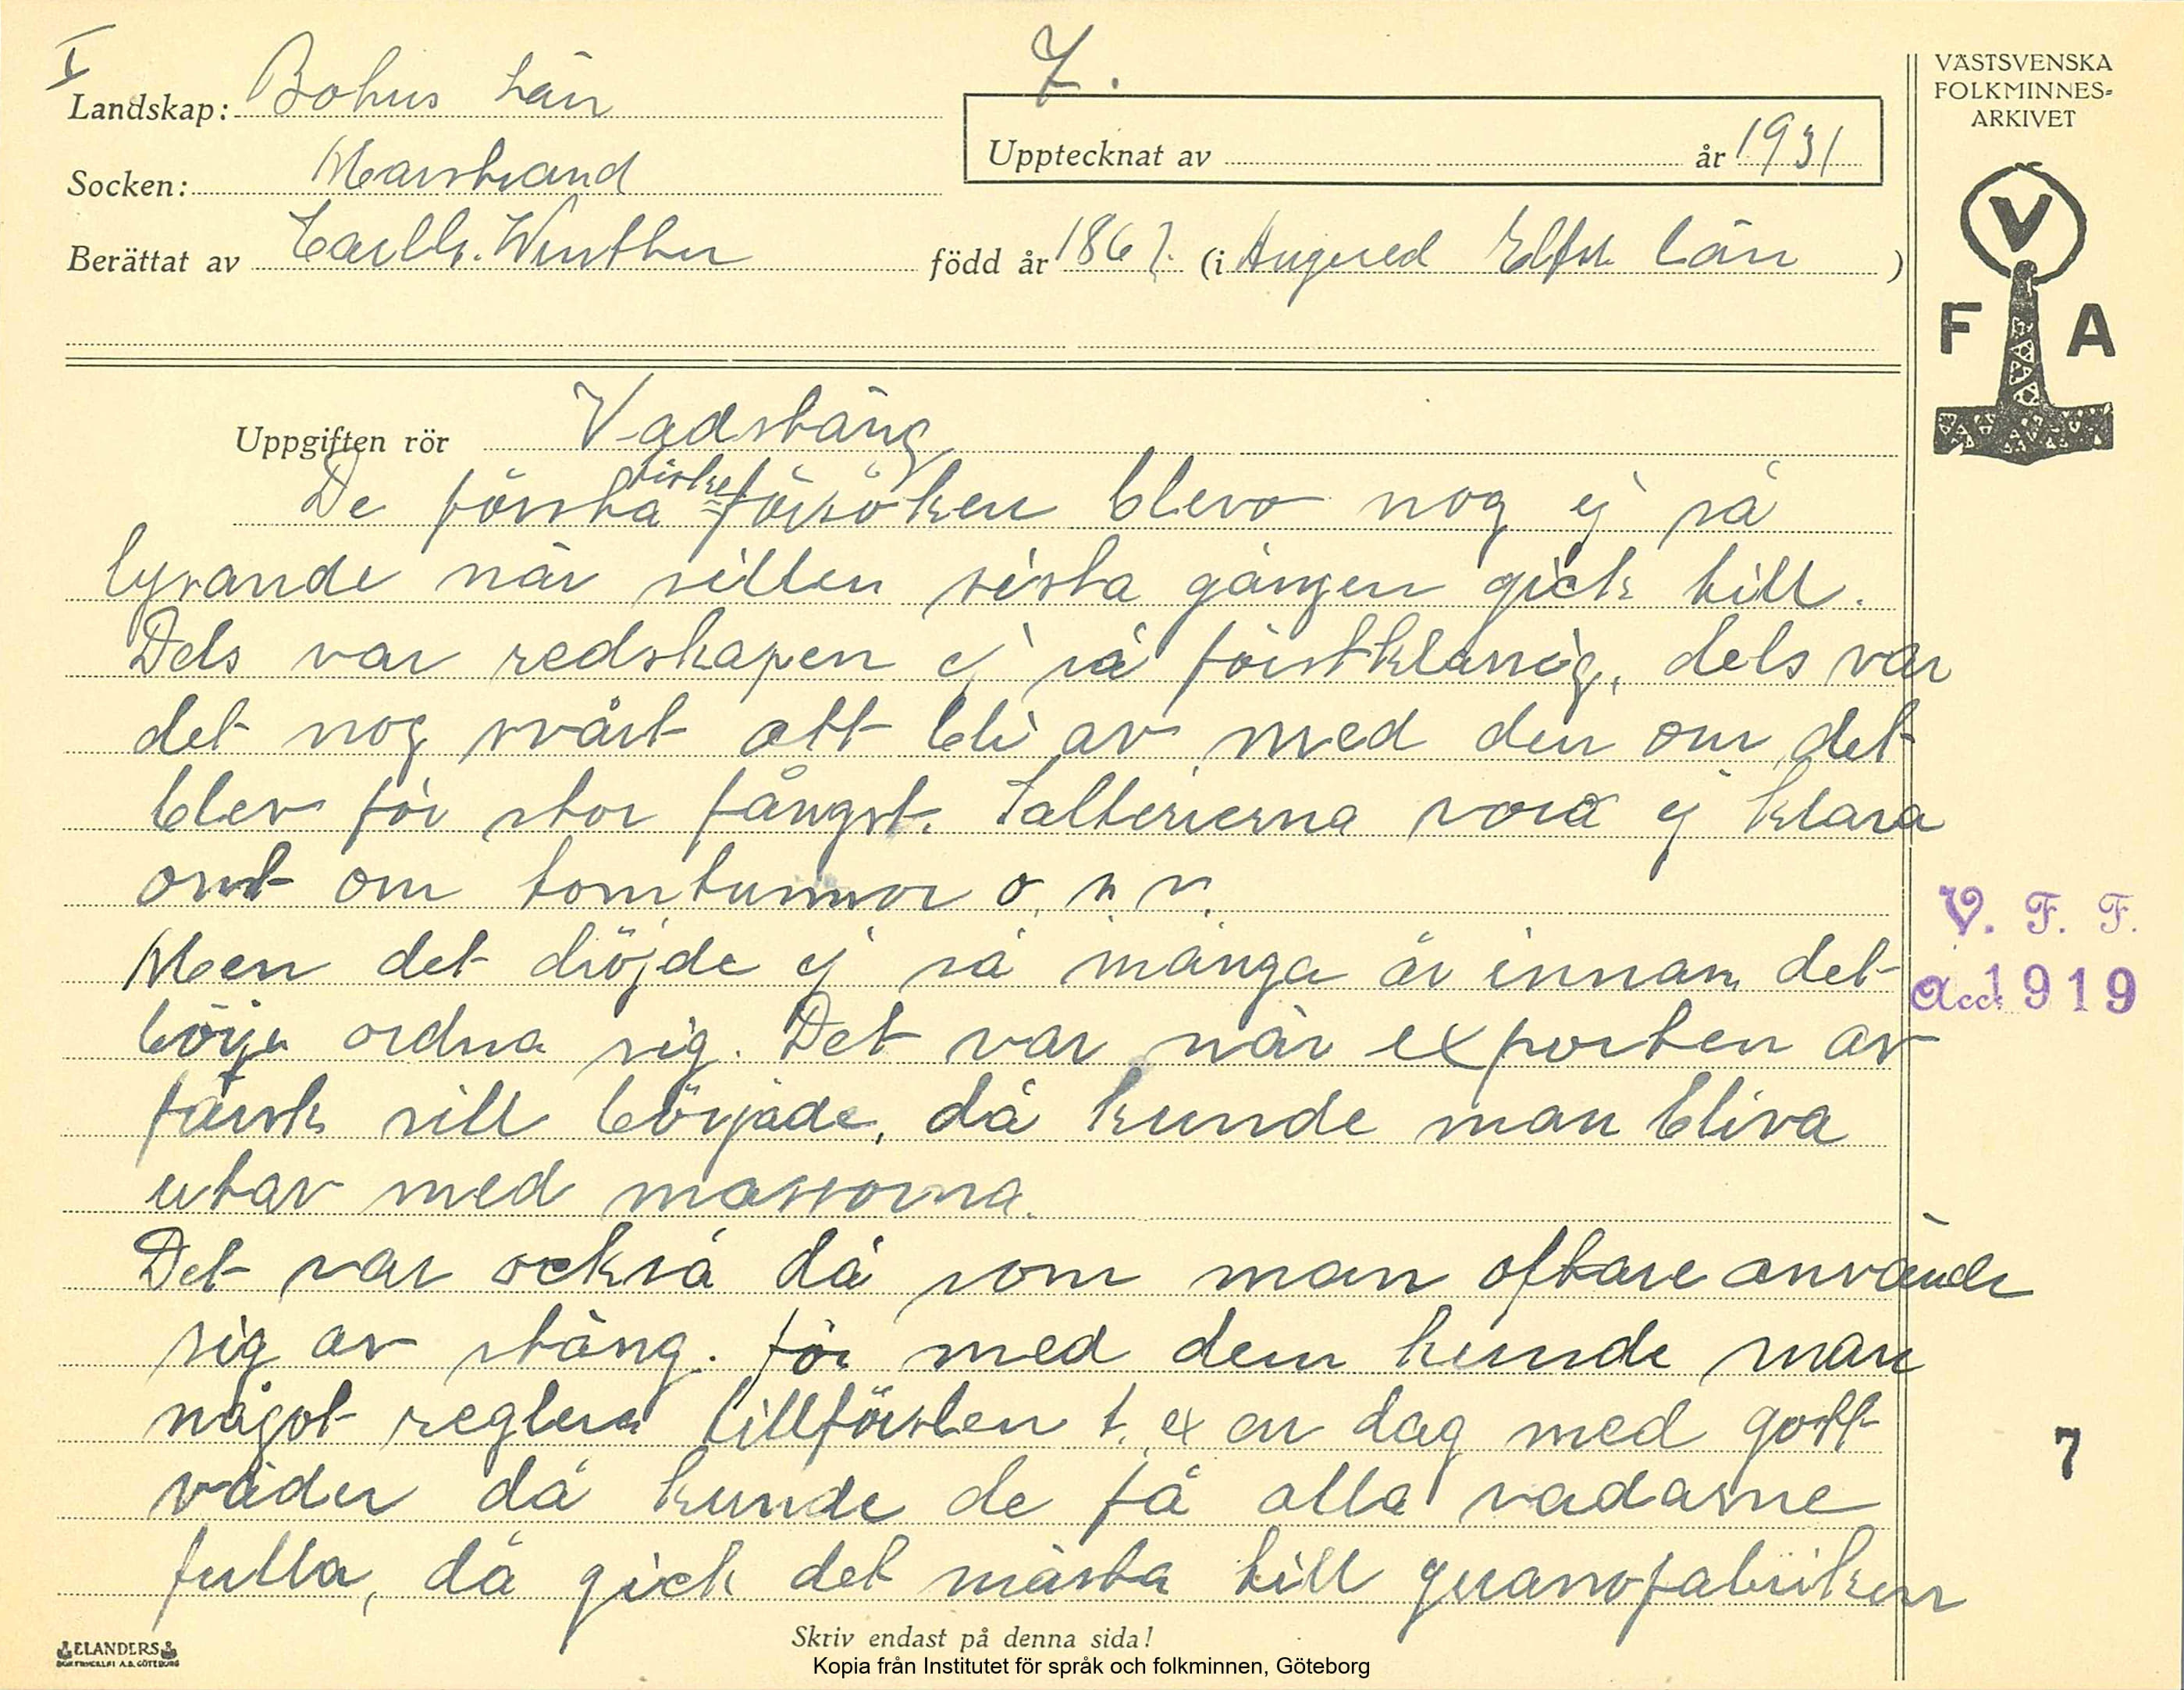 7.
Landskap: Bohus Län
Socken: Marstrand
Berättat av Carl Gr. Winther
Upptecknat av år 1931
född år 1867. (i Angered Elfsb. Län )
VÄSTSVENSKA
FOLKMINNES-
ARKIVET
V
F A
Uppgiften rör Vadstäng
De första fiske=försöken blevo nog ej så
lysande när sillen sista gången gick till.
Dels var redskapen ej så förstklassig, dels var
det nog svårt att bli av med den om det
blev för stor fångst. Salterierna vora ej klara
ont om tomtunnor o. s. v.
Men det dröjde ej så många år innan det
börja ordna sig. Det var när exporten av
färsk sill började, då kunde man bliva
utav med massorna.
Det var också då som man oftare använde
sig av stäng. för med dem kunde man
något reglera tillförslen t. ex en dag med gott
väder då kunde de få alla vadarne
fulla, då gick det mästa till guanofabriken
V. F. F.
Acc. 1919
7
Skriv endast på denna sida!
ELANDERS
BOKTRYCKERI A.B. GÖTEBORG
Kopia från Institutet för språk och folkminnen, Göteborg